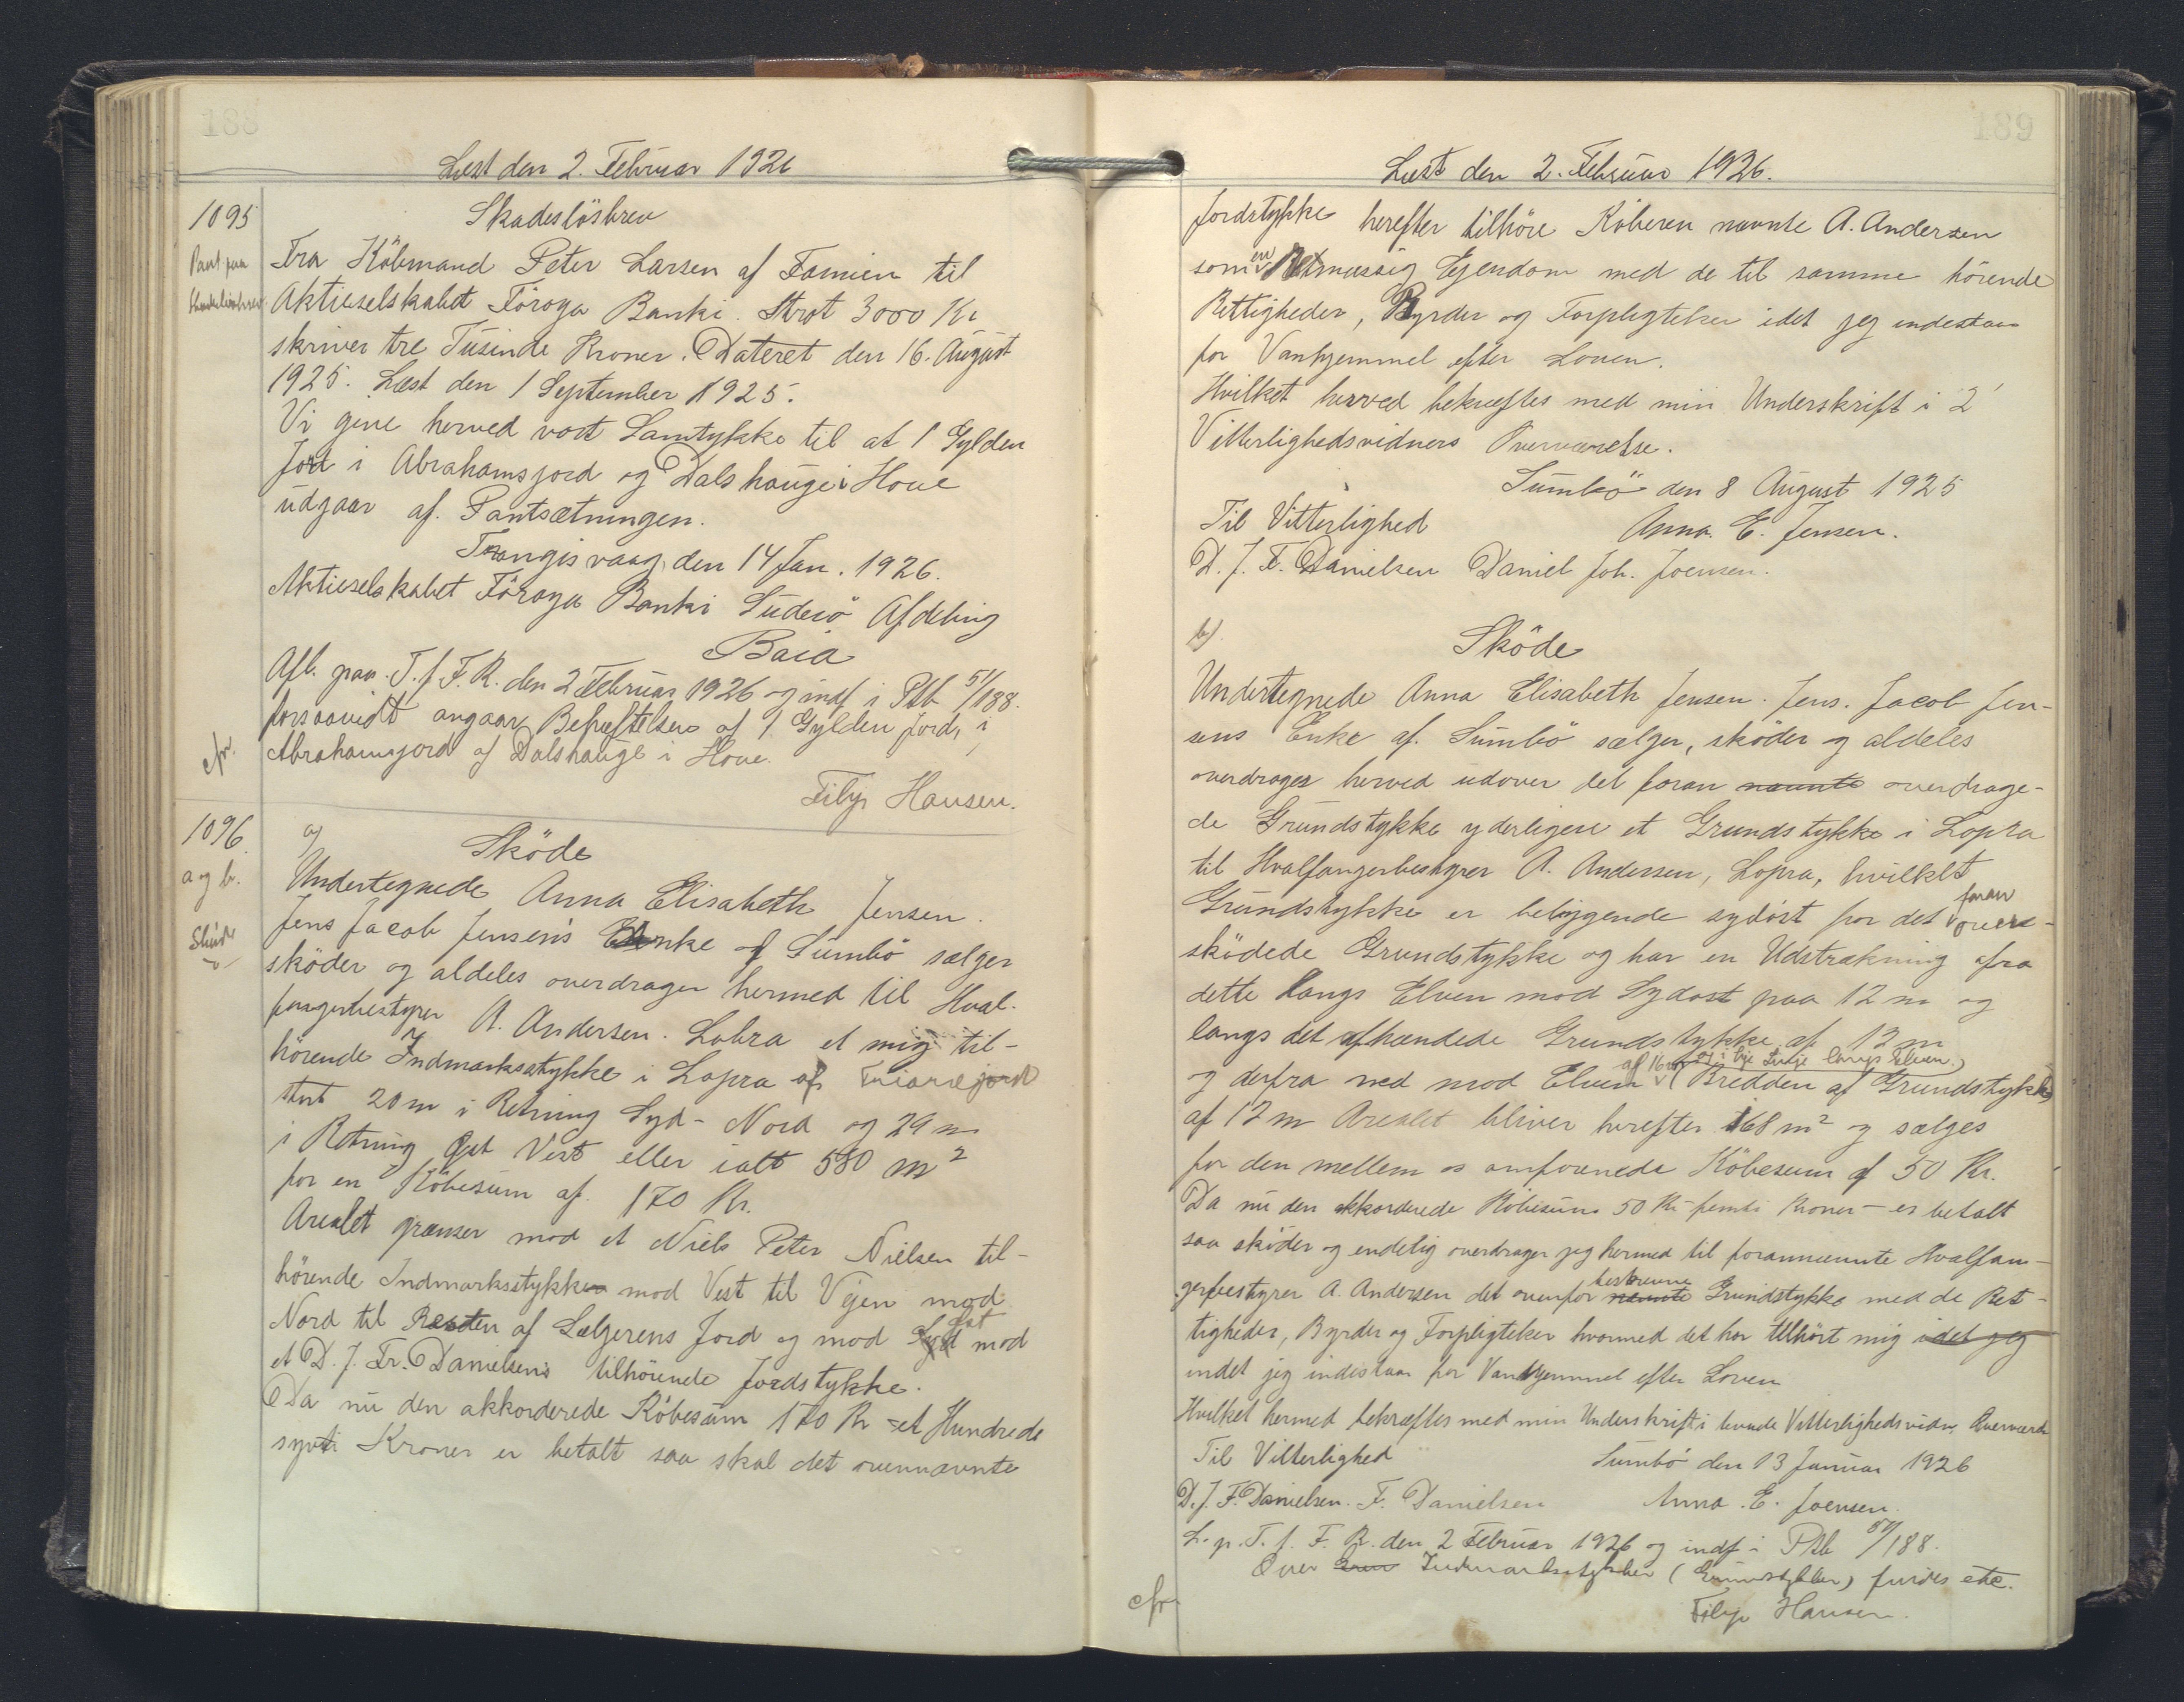 188
Læst den 2. Februar 1926
1095
Skadeslösbrev
Pant paa
Fra Köbmand Peter Larsen af Famien til
Aktieselskabet Föroya Banki. Stort 3000 Kr
skriver tre Tusinde Kroner. Dateret den 16. August
1925. Læst den 1 September 1925.
Vi give herved vort Samtykke til at 1 Gylden
Jord i Abrahamsjord og Dalshauge i Hove
udgaar af Pantsætningen.
Trangisvaag, den 14 Jan. 1926.
Aktieselskabet Föroya Banki Suderö Afdeling
Baia
Afl. paa T. f. F. R. den 2 Februar 1926 og indf i Ptb 51/188.
forsaavidt angaar Behæftelsen af 1 Gylden Jord, i
cfr.
Abrahamsjord og Dalshauge i Hove.
Filip Hansen.
1096.
a og b.
Sköde
a)
Sköde
Undertegnede Anna Elisabeth Jensen.
Jens Jacob Jensens Enke af Sumbö sælger
sköder og aldeles overdrager hermed til Hval-
fangerbestyrer A. Andersen. Lobra et mig til-
hörende Indmarksstykke i Lopra af
stort 20 m i Retning Syd - Nord og 29 m
i Retning Öst Vest eller ialt 580 m²
for en Köbesum af 170 Kr.
Arealet grænser mod et Niels Peter Nielsen til-
hörende Indmarksstykke mod Vest til Vejen mod
Nord til Resten af Sælgerens Jord og mod Syd öst mod
et D. J. Fr. Danielsens tilhörende Jordstykke.
Da nu den akkorderede Köbesum 170 Kr - et Hundrede
syvti Kroner er betalt saa skal det ovennævnte
189
Læst den 2. Februar 1926.
Jordstykke herefter tilhöre Köberen nævnte A. Andersen
som en Retmæssig Ejendom med de til samme hörende
Rettigheder, Byrder og Forpligtelser idet jeg indestaar
for Vanhjemmel efter Loven.
Hvilket herved bekræftes med min Underskrift i 2
Vitterlighedsvidners Overværelse.
Sumbö den 8 August 1925
Til Vitterlighed
Anna. E. Jensen.
D. J. F. Danielsen Daniel Joh. Joensen.
b).
Sköde
Undertegnede Anna Elisabeth Jensen. Jens. Jacob Jen-
sens Enke af Sumbö sælger, sköder og aldeles
overdrager herved udover det foran nævnte overdrage-
de Grundstykke yderligere et Grundstykke i Lopra
til Hvalfangerbestyrer A. Andersen, Lopra, hvilket
Grundstykke er beliggende sydöst for det foran over-
sködede Grundstykke og har en Udstrækning fra
dette langs Elven mod Sydöst paa 12 m og
langs det afhændede Grundstykke af 12 m
og derfra ned mod Elven af 16 m og i lige Linje langs Elven (Bredden af Grundstykke)
af 12 m Arealet bliver herefter 168 m² og sælges
for den mellem os omforenede Köbesum af 50 Kr.
Da nu den akkorderede Köbesum 50 Kr - femti Kroner - er betalt
saa sköder og endelig overdrager jeg hermed til forannævnte Hvalfan-
gerbestyrer A. Andersen det ovenfor nævnte beskrevne Grundstykke med de Ret-
tigheder, Byrder og Forpligtelser hvormed det har tilhört mig idet jeg
indet jeg indestaar for Vanhjemmel efter Loven
Hvilket hermed bekræftes med min Underskrift i tvende Vitterlighedsvidn. Overværelse
Til Vitterlighed
Sumbö den 13 Januar 1926
D. J. F. Danielsen. F. Danielsen
Anna. E. Joensen.
L. p. T. f. F. R. den 2 Februar 1926 og indf i Ptb 51/188.
Over Indmarksstykker (Grundstykker) findes etc.
cfr
Filip Hansen.